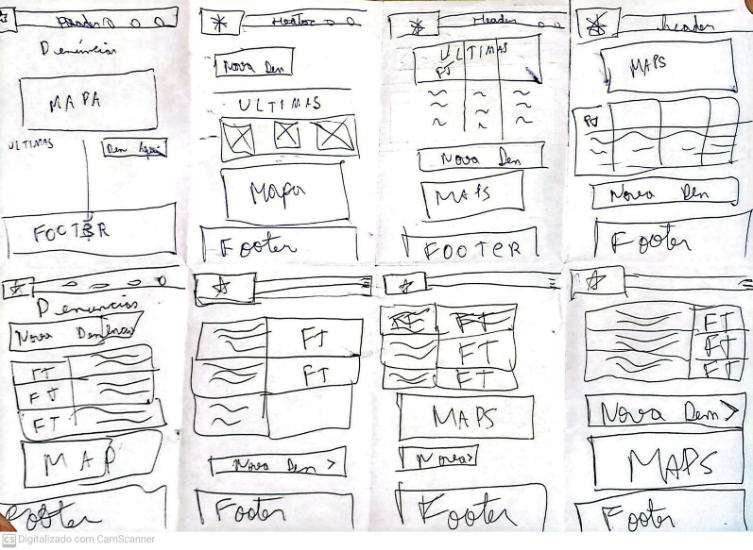 Header
Denúncias
MAPA
ULTIMAS
Den Aqui
FOOTER
Header
Nova Den
ULTIMAS
Mapa
Footer
Header
ULTIMAS
FT
Nova Den
MAPS
FOOTER
Header
MAPS
FT
Nova Den
Footer
Denuncias
Nova Denúncia
FT
FT
FT
MAP
Footer
FT
FT
Nova Den >
Footer
FT FT
FT
FT
MAPS
Nova >
Footer
FT
FT
FT
Nova Den >
MAPS
Footer
CS Digitalizado com CamScanner